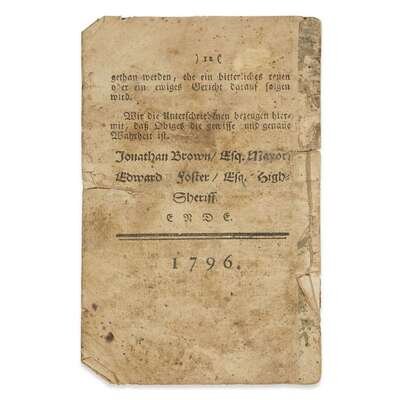 ) 12 (
gethan werden, ehe ein bitterliches reuen
oder ein ewiges Gericht darauf folgen
wird.
Wir die Unterschriebnen bezeugen hier-
mit, daß Obiges die gewisse und genaue
Wahrheit ist.
Jonathan Brown/ Esq. Mayor/
Edward Foster/ Esq. High-
Sheriff.
ENDE.
1796.